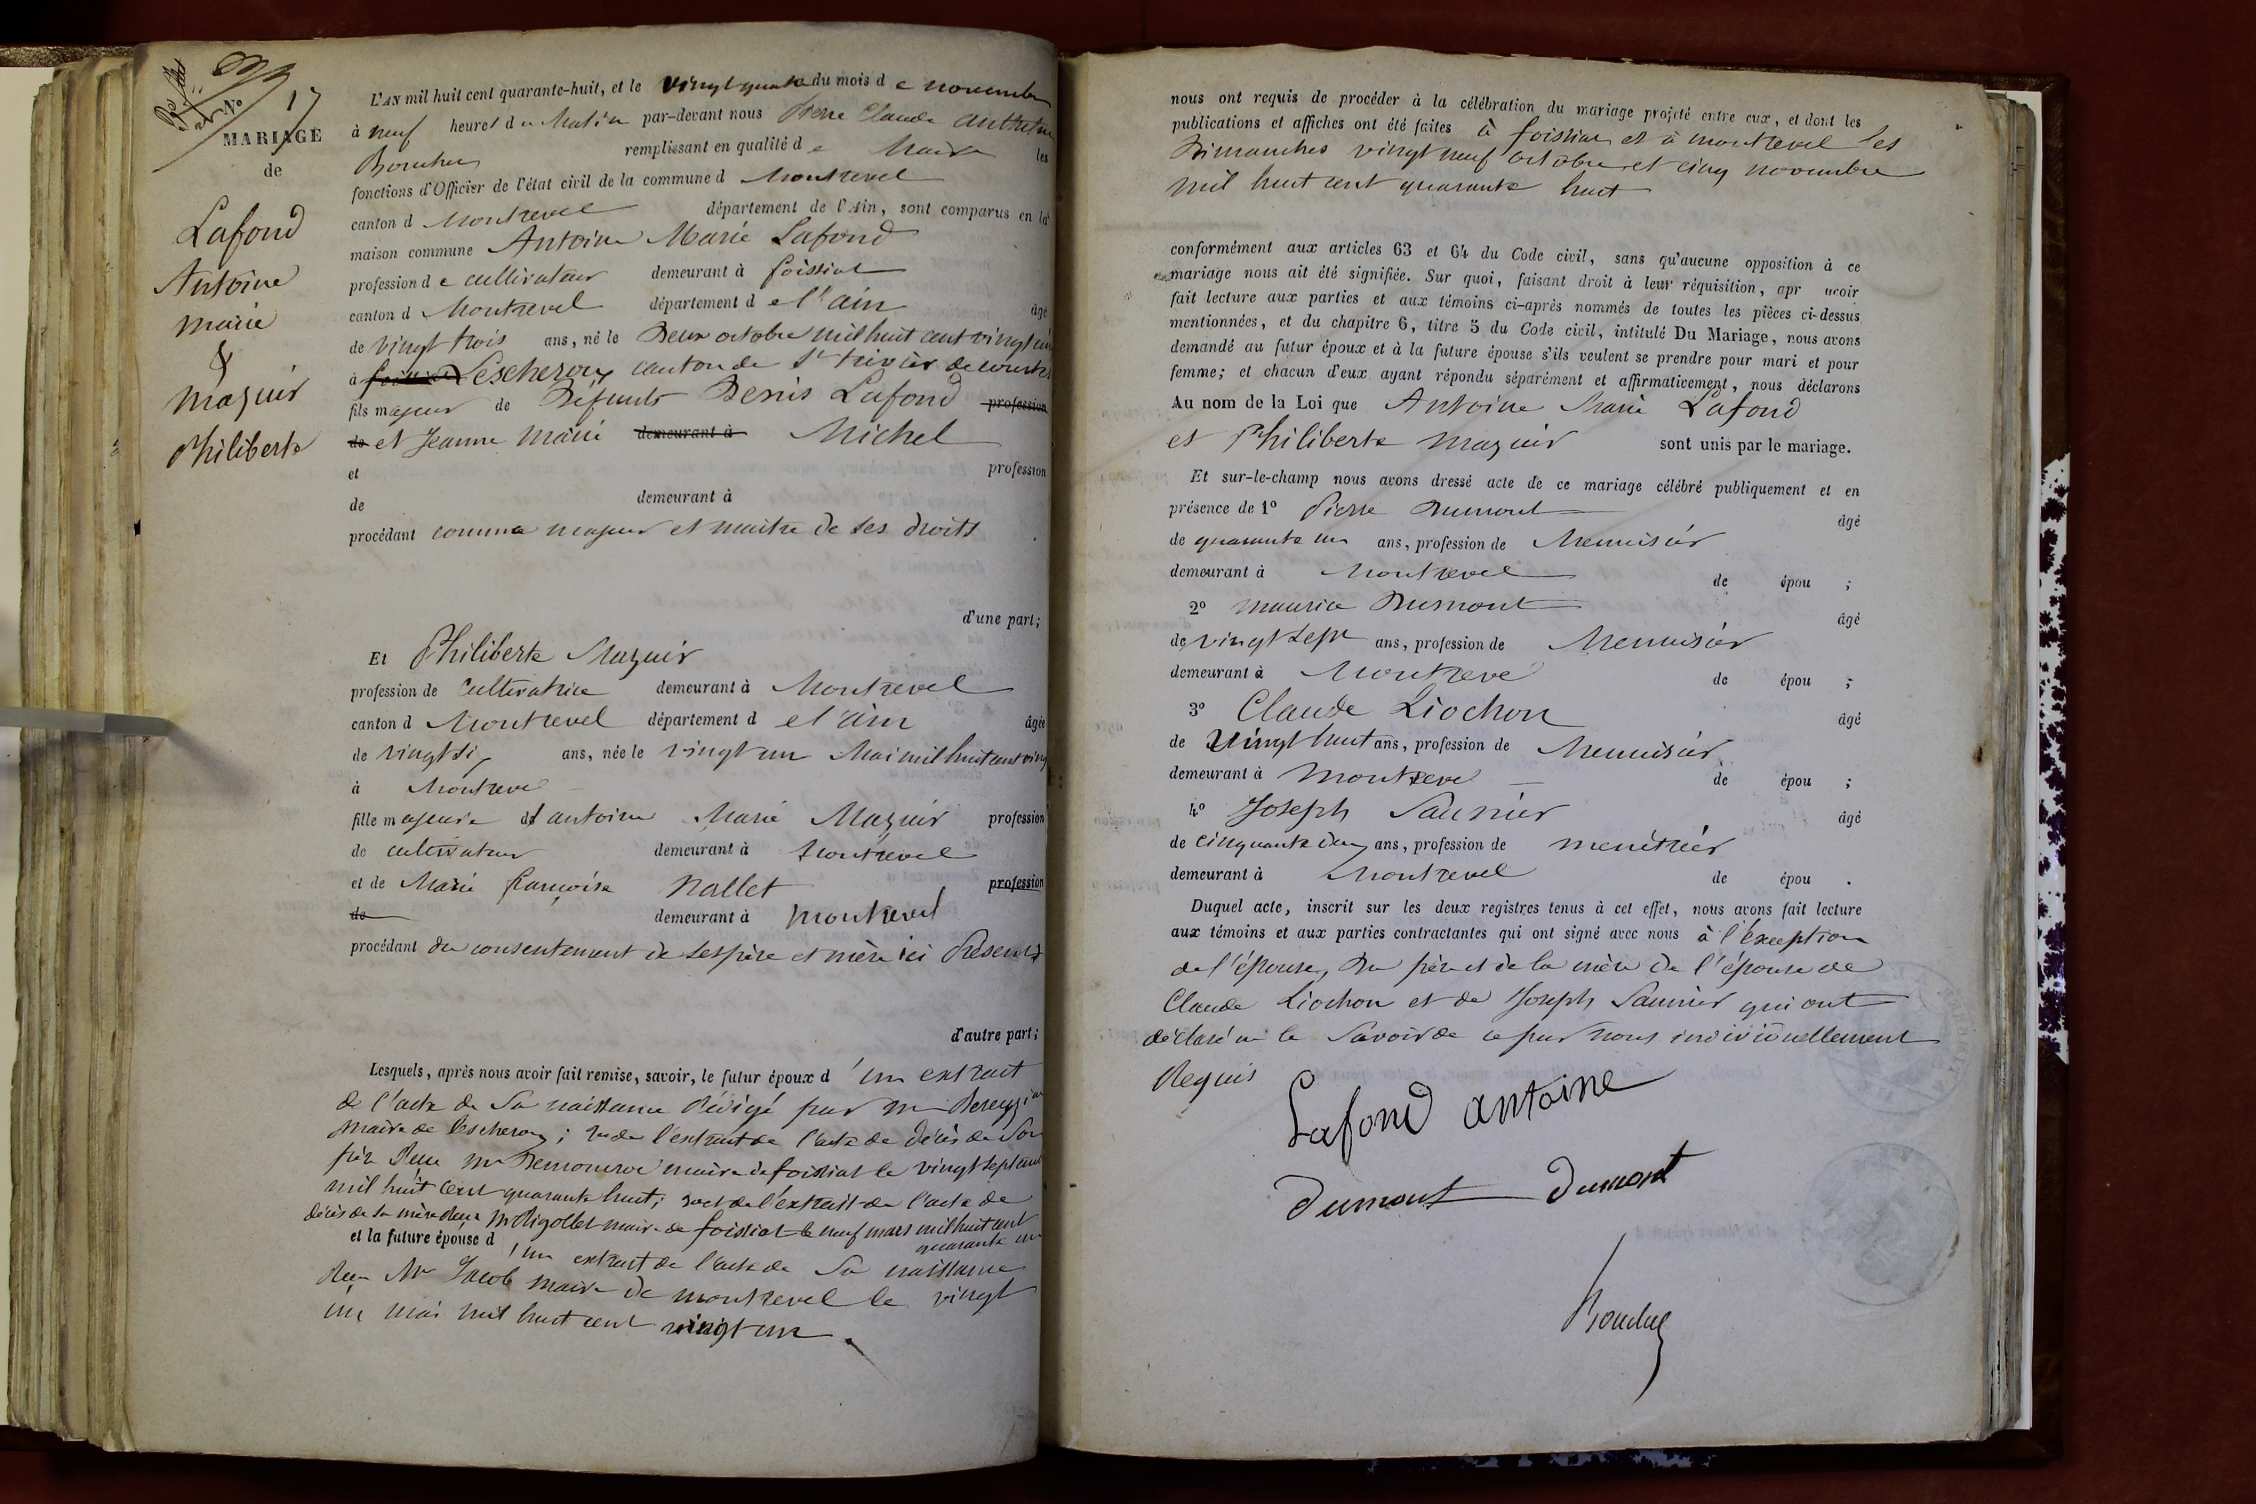 N° 17
MARIAGE
de
Lafond
Antoine
Marie
&
Mazuir
Philiberte
L'AN mil huit cent quarante-huit, et le vingt quatre du mois d e novembre
à neuf heures du Matin par-devant nous Pierre Claude Anthelme
Bouchy remplissant en qualité d e Maire les
fonctions d'Officier de l'état civil de la commune d Montrevel
canton d Montrevel département de l'Ain, sont comparus en la
maison commune Antoine Marie Lafond
profession d e cultivateur demeurant à foissiat
canton d Montrevel département d e l'ain âgé
de vingt trois ans, né le Deux octobre mil huit cent vingt cinq
à Lescheroux canton de St trivier de courtes
fils majeur de Défunts Denis Lafond profession
de et Jeanne Marie demeurant à Michel
et profession
de demeurant à
procédant comme majeur et maitre de ses droits
d'une part;
Et Philiberte Mazuir
profession de cultivatrice demeurant à Montrevel
canton d Montrevel département d e l'ain âgée
de vingt six ans, née le vingt un Mai mil huit cent vingt
à Montrevel
fille majeure d'antoine Marie Mazuir profession
de cultivateur demeurant à Montrevel
et de Marie françoise Nallet profession
de demeurant à Montrevel
procédant du consentement de ses père et mère ici Présents
d'autre part;
Lesquels, après nous avoir fait remise, savoir, le futur époux d 'un extrait
de l'acte de Sa naissance Rédigé par m
Maire de Lescheroux; 2o de l'extrait de l'acte de décès de Son
père Reçu mr maire de foissiat le vingt sept
mil huit cent quarante huit; 3o et de l'extrait de l'acte de
décès de sa mère Reçu Mr Rigollet maire de foissiat le neuf mars mil huit cent
quarante un
et la future épouse d 'un extrait de l'acte de Sa naissance
Reçu Mr Jacob maire de montrevel le vingt
un mai mil huit cent vingt un
nous ont requis de procéder à la célébration du mariage projeté entre eux, et dont les
publications et affiches ont été faites à foissiat et à montrevel les
Dimanches vingt neuf octobre et cinq novembre
mil huit cent quarante huit
conformément aux articles 63 et 64 du Code civil, sans qu'aucune opposition à ce
mariage nous ait été signifiée. Sur quoi, faisant droit à leur réquisition, apr avoir
fait lecture aux parties et aux témoins ci-après nommés de toutes les pièces ci-dessus
mentionnées, et du chapitre 6, titre 5 du Code civil, intitulé Du Mariage, nous avons
demandé au futur époux et à la future épouse s'ils veulent se prendre pour mari et pour
femme; et chacun d'eux ayant répondu séparément et affirmativement, nous déclarons
Au nom de la Loi que Antoine Marie Lafond
et Philiberte Mazuir sont unis par le mariage.
Et sur-le-champ nous avons dressé acte de ce mariage célébré publiquement et en
présence de 1° Pierre Dumont âgé
de quarante un ans, profession de Menuisier
demeurant à Montrevel de épou ;
2° Maurice Dumont âgé
de vingt sept ans, profession de Menuisier
demeurant à Montrevel de épou ;
3° Claude Liochon âgé
de Vingt huit ans, profession de Menuisier
demeurant à Montrevel de épou ;
4° Joseph Saunier âgé
de cinquante deux ans, profession de menétrier
demeurant à Montrevel de épou .
Duquel acte, inscrit sur les deux registres tenus à cet effet, nous avons fait lecture
aux témoins et aux parties contractantes qui ont signé avec nous à l'exception
de l'épouse, Du père et de la mère de l'épouse de
Claude Liochon et de Joseph Saunier qui ont
déclaré ne le Savoir de ce par nous individuellement
Requis
Lafond antoine
dumont Dumont
Bouchy